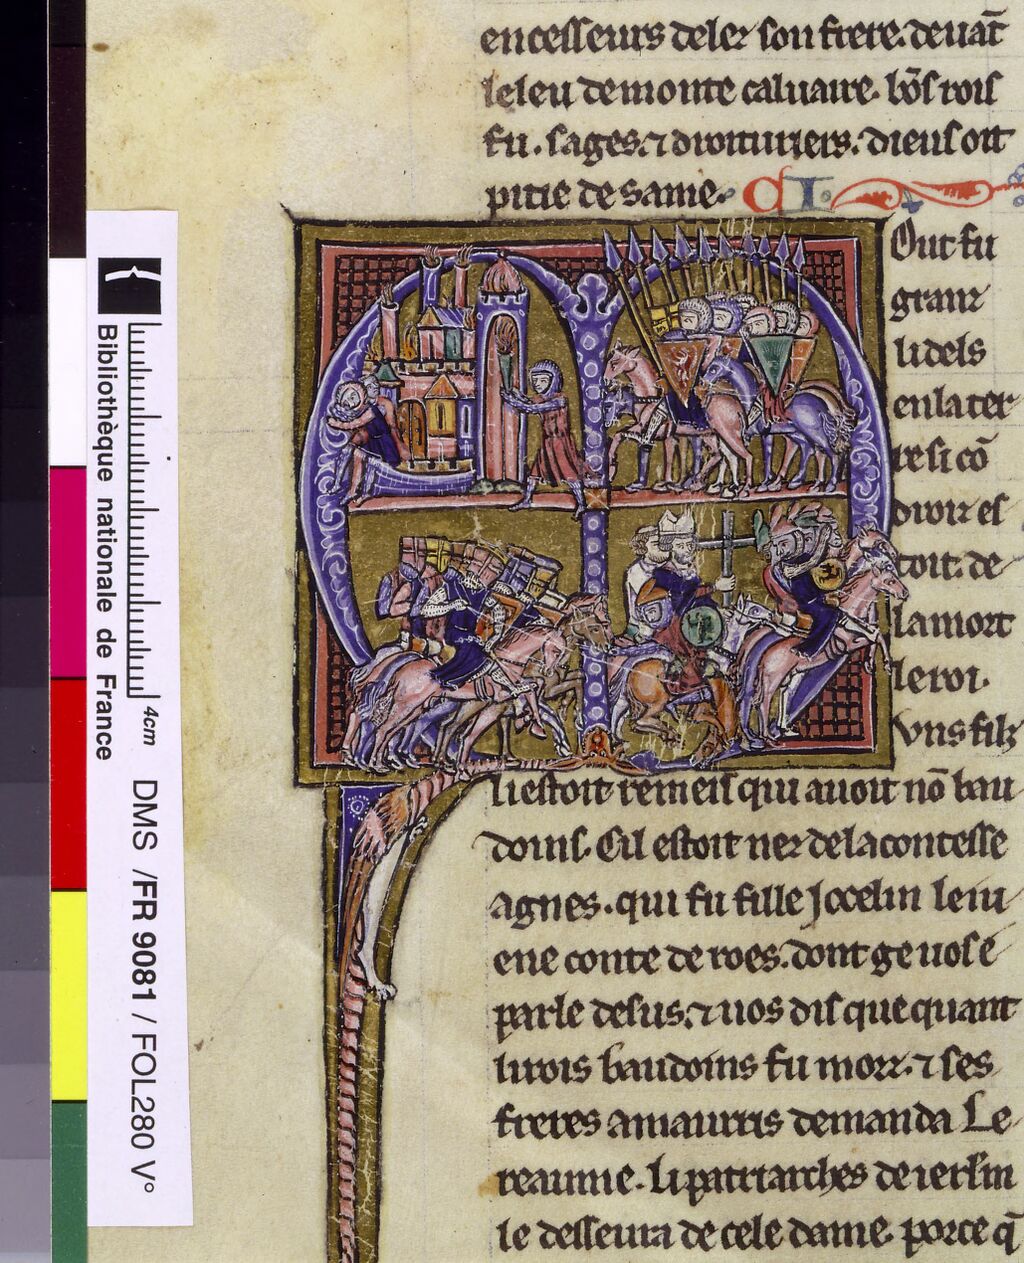 encesseurs delez son frere. deuāt
leleu de monte caluaire. bōs rois
fu. sages. ⁊ droituriers. dieus oit
pitie de same.
Out fu
granz
li dels
en la ter
re si cō
droiz es
toit. de
la mort
le roi.
Vns filz
li estoit remeis qui auoit nō bau
doins. Cil estoit nez de la contesse
agnes. qui fu fille Jocelin le iu
ene conte de roes. dont ge uos e
parle desus. ⁊ uos dis que quant
li rois baudoins fu morz. ⁊ ses
freres amaurris demanda Le
reaume. li patriarches de ierlm
le desseura de cele dame. porce q̄
Bibliothèque nationale de France
4cm
DMS /FR 9081 / FOL280 V°